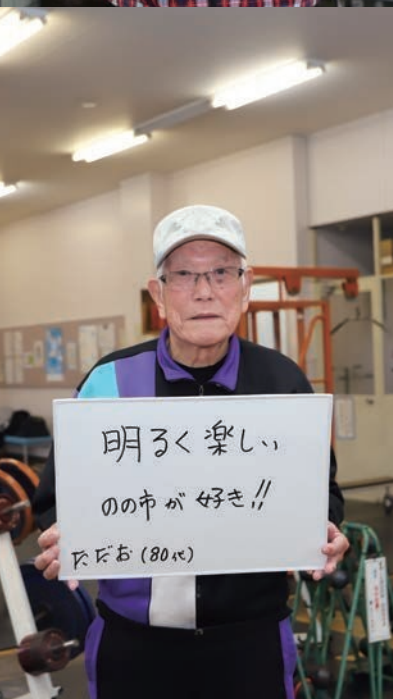 明るく楽しい
のの市が好き!!
ただお(80代)